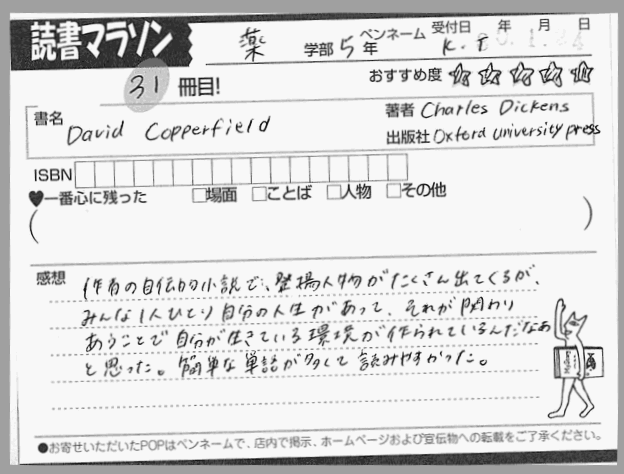 読書マラソン
薬 学部 5年 ペンネーム K.T 受付日 年 月 日
31 冊目!
おすすめ度 ☆☆☆☆☆
書名 David Copperfield
著者 Charles Dickens
出版社 Oxford university press
ISBN
♥一番心に残った □場面 □ことば □人物 □その他
( )
感想
作者の自伝的小説で、登場人物がたくさん出てくるが、
みんな1人ひとり自分の人生があって、それが関わり
あうことで自分が生きている環境が作られているんだなあ
と思った。簡単な単語が多くて読みやすかった。
●お寄せいただいたPOPはペンネームで、店内で掲示、ホームページおよび宣伝物への転載をご了承ください。